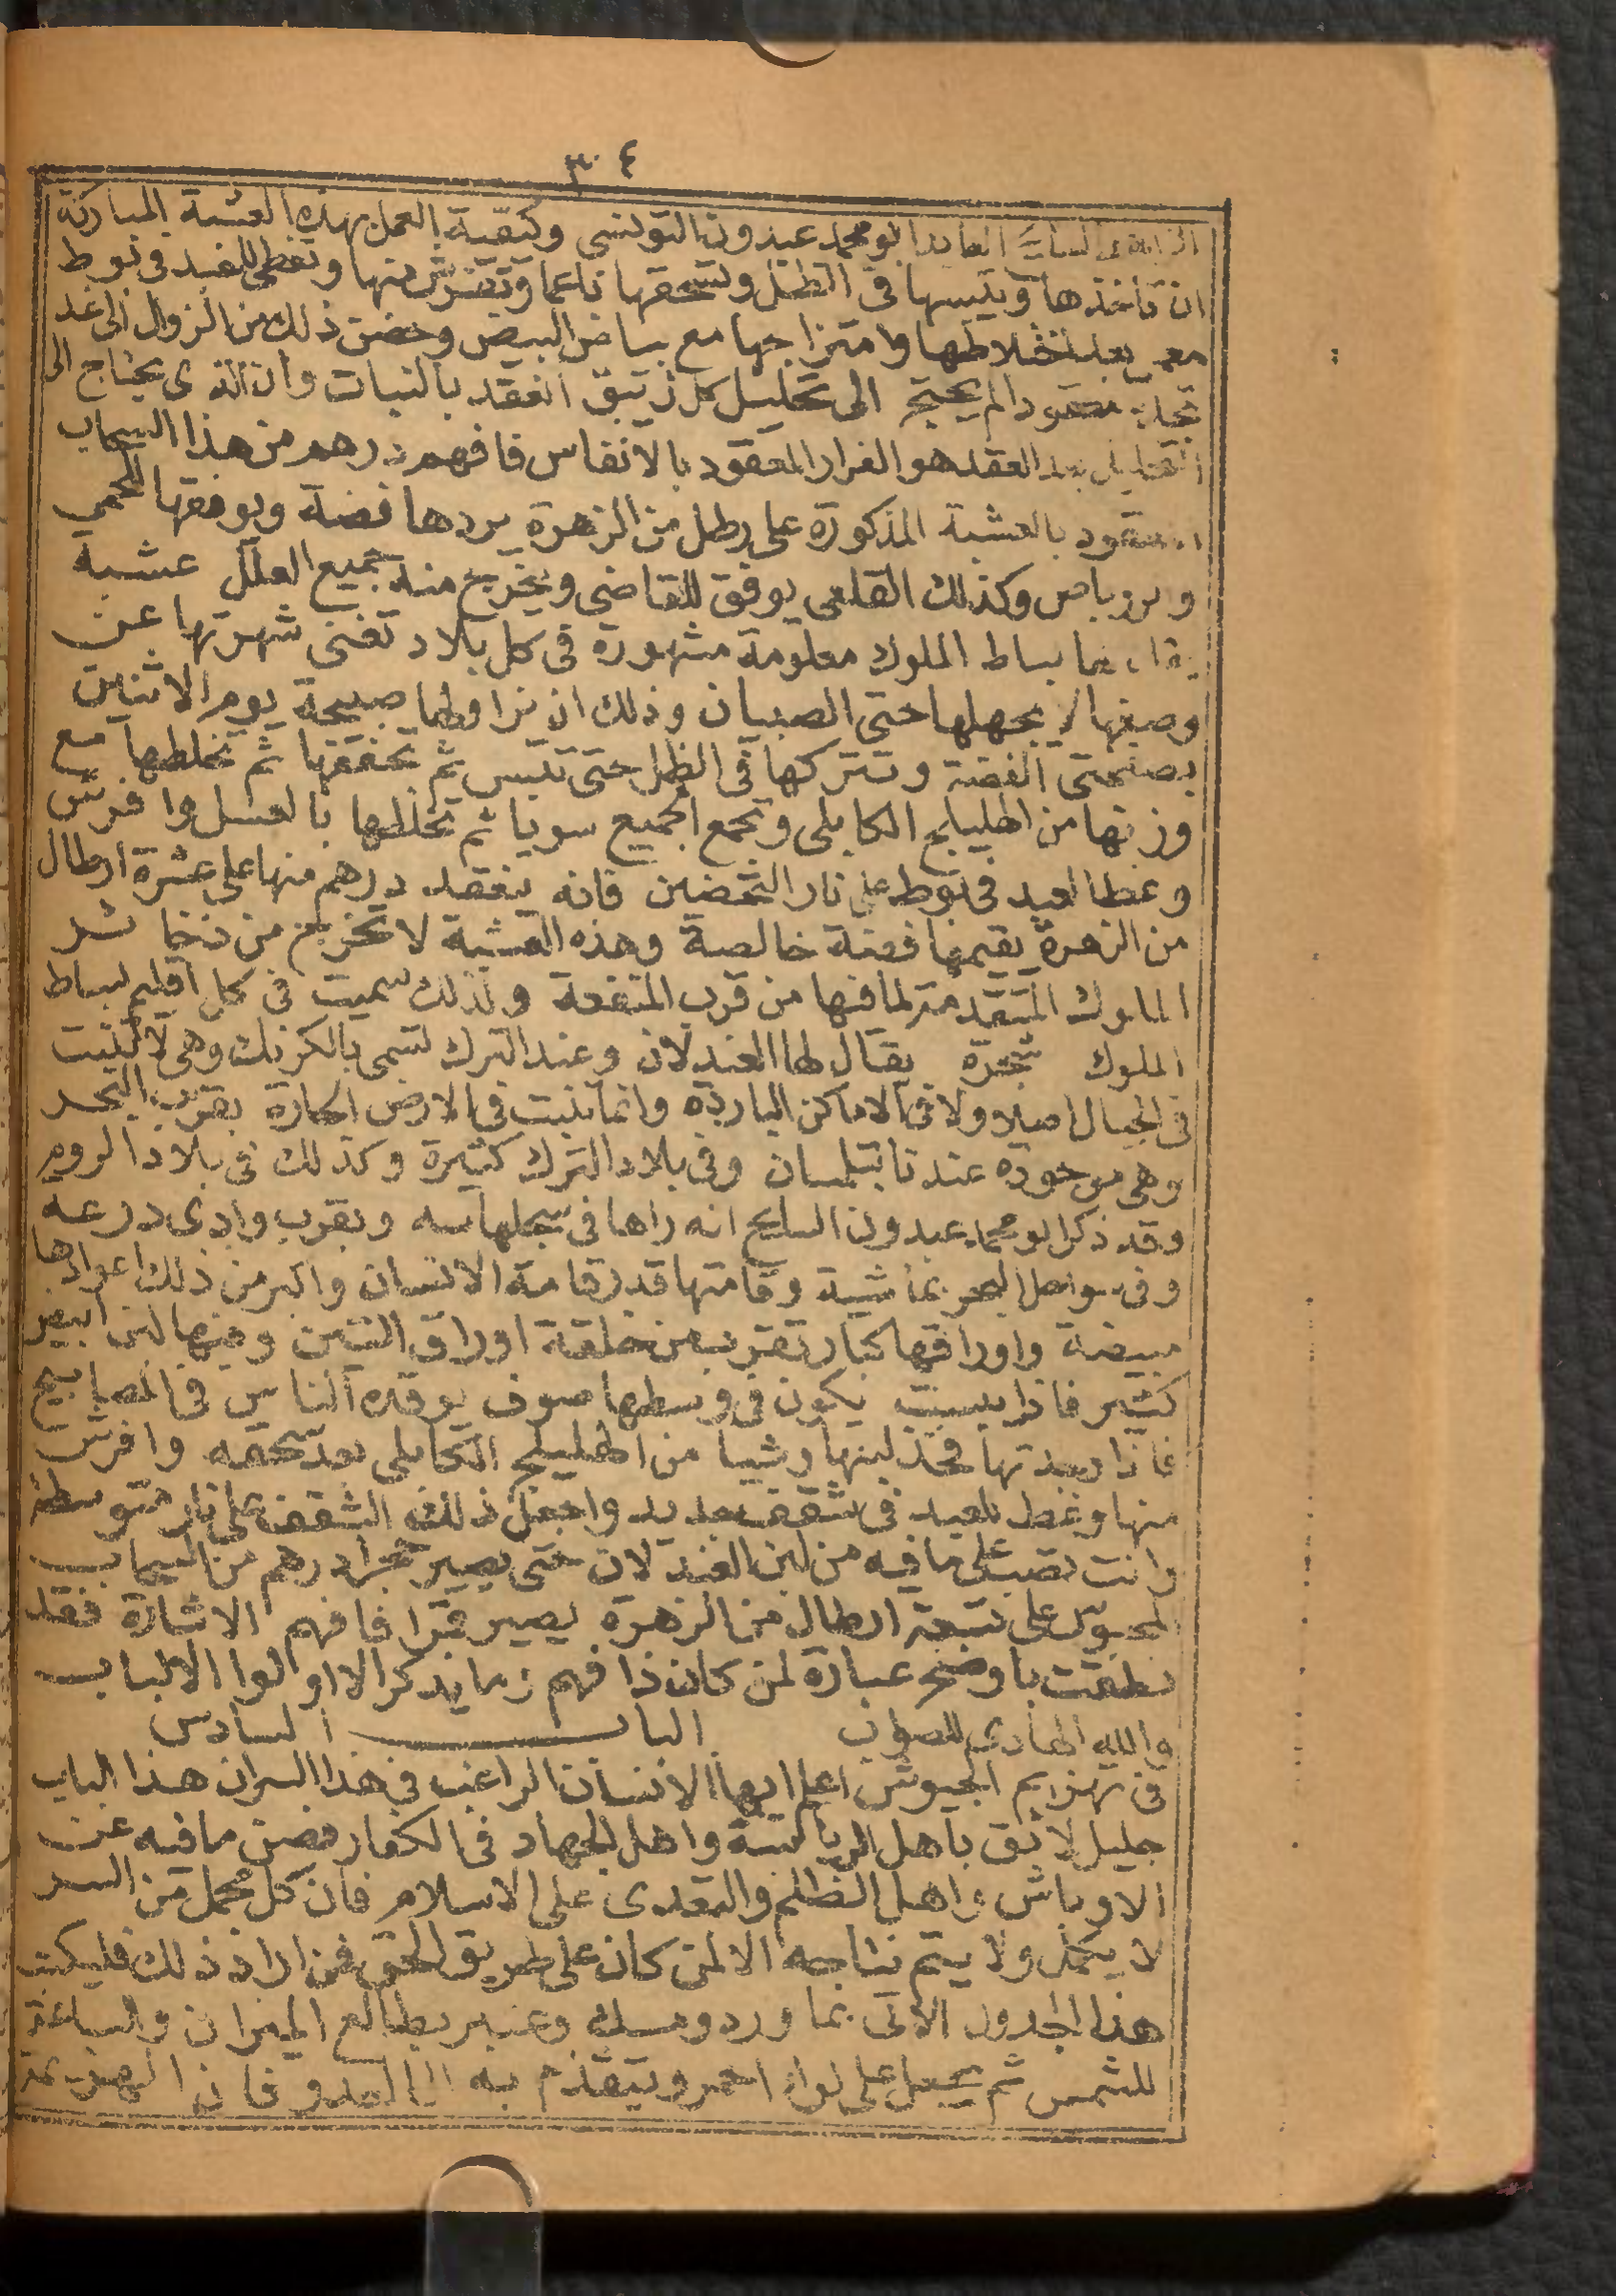 ٣٠٤
العابد ابو محمد عبدون التونسى وكيفية العمل بهذه العشبة المباركة
ان تأخذها وتيبسها فى الظل وتسحقها ناعما وتفرش منها وتغطى للعبد فى بوط
بعد اختلاطها وامتزاجها مع بياض البيض وحضن ذلك من الزوال الى غد
تجده معقودا لم يحتج الى تحليل كل زئبق انعقد بالنبات وان الذى يحتاج الى
التحليل بعد العقد هو الفرار المعقود بالانفاس فافهم درهم من هذا السحاب
المعقود بالعشبة المذكورة على رطل من الزهرة يردها فضة ويوفقها الحمي
وبرزباص وكذلك القلعى يوفق للقاضى ويخرج منه جميع العلل عشبة
يقال لها بساط الملوك معلومة مشهورة فى كل بلاد تغنى شهرتها عن
وصفها لا يجهلها حتى الصبيان وذلك ان صبيحة يوم الاثنين
بصفحتى الفضة وتتركها فى الظل حتى تيبس ثم تخلطها مع
وزنها من اهليلج الكابلى وتجمع الجميع سويا ثم تخلطها بالعسل وافرش
وغطا العبد فى بوط على نار التحضين فانه ينعقد درهم منها على عشرة ارطال
من الزهرة يقيمها فضة خالصة وهذه العشبة لا تخرج من ذخائر
الملوك المتقدمة لما فيها من قرب المنفعة ولذلك سميت فى كل اقليم بساط
الملوك شجرة يقال لها الغندلان وعند الترك تسمى بالكرنك وهى لا تنبت
فى الجبال اصلا ولا فى الاماكن الباردة وانما تنبت فى الارض الحارة بقرب البحر
وهى موجودة عندنا بتلمسان وفى بلاد الترك كثيرة وكذلك فى بلاد الروم
وقد ذكر ابو محمد عبدون السايح انه راها فى سجلماسه وبقرب وادى درعه
وفى سواحل البحر وقامتها قدر قامة الانسان واكبر من ذلك اعوادها
مبيضة واوراقها كبار تقرب من خلقة اوراق التين وفيها لبن ابيض
كثير فاذا يبست يكون فى وسطها صوف يوقده الناس فى المصابيح
فاذا وجدتها فخذ لبنها وشيا من اهليلج الكابلى بعد سحقه وافرش
منها وغط للعبد فى شقف جديد واجعل ذلك الشقف على نار متوسطة
وانت تصب على ما فيه من لبن الغندلان حتى يصير حجرا درهم من السحاب
على سبعة ارطال من الزهرة يصير قمرا فافهم الاشارة فقد
نطقت باوضح عبارة لمن كان ذا فهم وما يذكر الا اولوا الالباب
والله الهادى للصواب الباب السادس
فى تهزيم الجيوش اعلم ايها الانسان الراغب فى هذا السران هذا الباب
جليل لائق باهل الرياسة واهل الجهاد فى الكفار فصن ما فيه عن
الاوباش واهل الظلم والتعدى على الاسلام فان كل عمل من السر
لا يكمل ولا يتم نتاجه الا لمن كان على طريق الحق فمن اراد ذلك فليكتب
هذا الجدول الاتى بما ورد ومسك وعنبر بطالع الميزان والساعة
للشمس ثم يجعل على لواء احمر ويتقدم به الى العدو فان